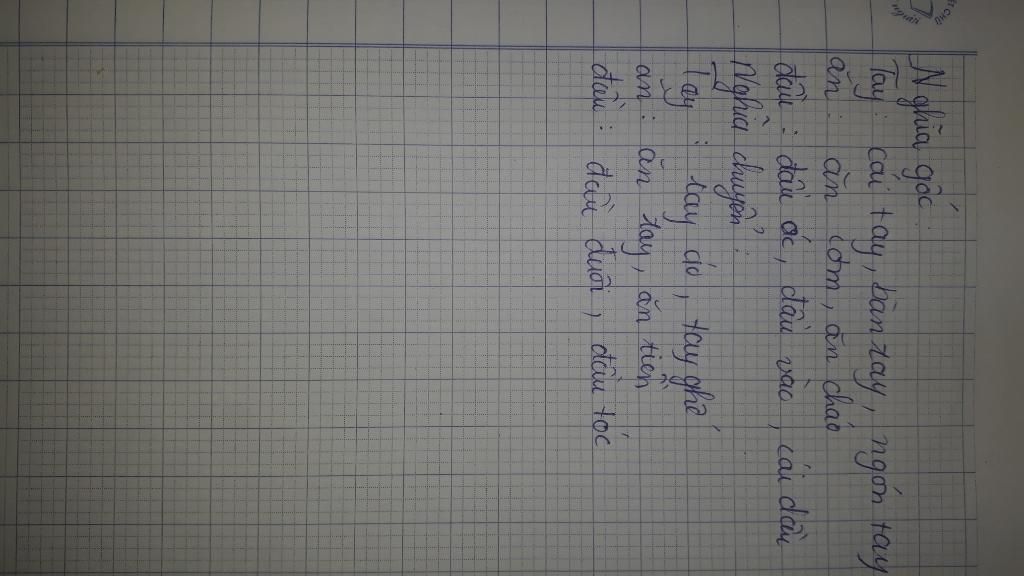 Nghĩa gốc:
Tay: cái tay, bàn tay, ngón tay
ăn: ăn cơm, ăn cháo
đầu: đầu óc, đầu vào, cái đầu
Nghĩa chuyển:
Tay: tay áo, tay ghế
ăn: ăn tay, ăn tiền
đầu: đầu đuôi, đầu tóc